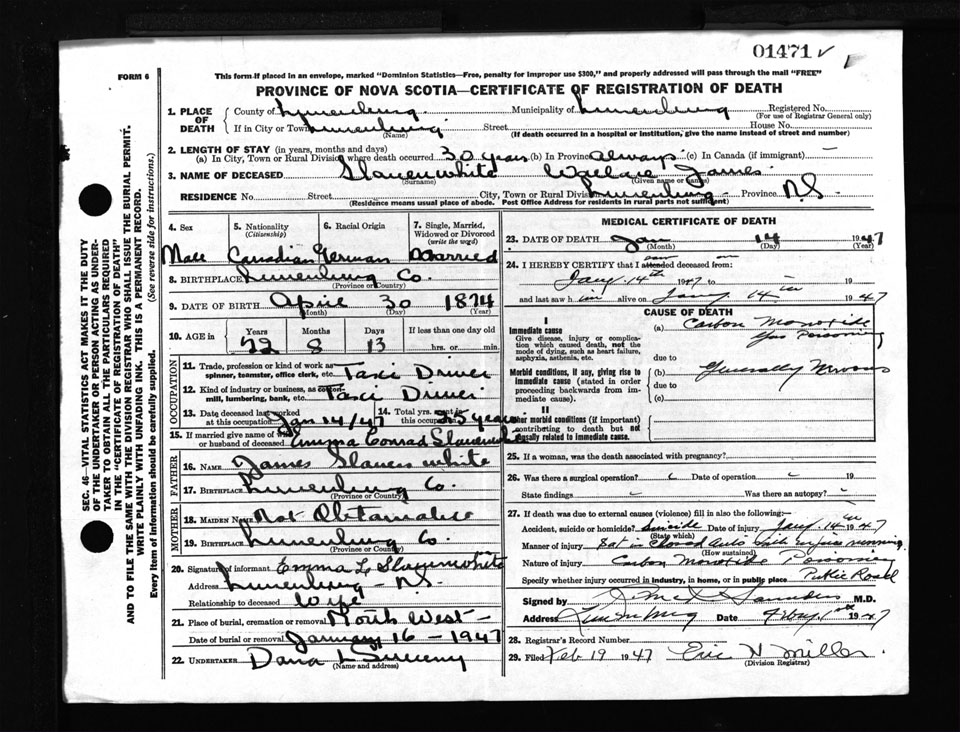 01471 ✓
FORM 6
This form if placed in an envelope, marked "Dominion Statistics—Free, penalty for improper use $300," and properly addressed will pass through the mail "FREE"
PROVINCE OF NOVA SCOTIA—CERTIFICATE OF REGISTRATION OF DEATH
SEC. 46—VITAL STATISTICS ACT MAKES IT THE DUTY
OF THE UNDERTAKER OR PERSON ACTING AS UNDER-
TAKER TO OBTAIN ALL THE PARTICULARS REQUIRED
IN THE "CERTIFICATE OF REGISTRATION OF DEATH"
AND TO FILE THE SAME WITH THE DIVISION REGISTRAR WHO SHALL ISSUE THE BURIAL PERMIT.
WRITE PLAINLY WITH UNFADING INK. THIS IS A PERMANENT RECORD.
Every item of information should be carefully supplied. (See reverse side for instructions.)
1. PLACE OF DEATH County of Lunenburg Municipality of Lunenburg Registered No.
(For use of Registrar General only)
If in City or Town Lunenburg Street House No.
(Name) (If death occurred in a hospital or institution, give the name instead of street and number)
2. LENGTH OF STAY (in years, months and days)
(a) In City, Town or Rural Division where death occurred 30 years (b) In Province always (c) In Canada (if immigrant) —
3. NAME OF DECEASED Slauenwhite Wallace James
(Surname) (Given name or names)
RESIDENCE No. Street City, Town or Rural Division Lunenburg Province N.S
(Residence means usual place of abode. Post Office Address for residents in rural parts not sufficient)
4. Sex 5. Nationality (Citizenship) 6. Racial Origin 7. Single, Married, Widowed or Divorced (write the word)
Male Canadian German Married
8. BIRTHPLACE Lunenburg Co.
(Province or Country)
9. DATE OF BIRTH April 30 1874
(Month) (Day) (Year)
10. AGE in Years Months Days If less than one day old
72 8 13 hrs. or min.
OCCUPATION
11. Trade, profession or kind of work as spinner, teamster, office clerk, etc. Taxi Driver
12. Kind of industry or business, as cotton mill, lumbering, bank, etc. Taxi Driver
13. Date deceased last worked at this occupation Jan 14/47 14. Total yrs. spent in this occupation 25 years
15. If married give name of wife or husband of deceased Emma Conrad Slauenwhite
FATHER
16. NAME James Slauenwhite
17. BIRTHPLACE Lunenburg Co.
(Province or Country)
MOTHER
18. MAIDEN NAME Not Obtainable
19. BIRTHPLACE Lunenburg Co.
(Province or Country)
20. Signature of informant Emma L Slauenwhite
Address Lunenburg - N.S.
Relationship to deceased Wife
21. Place of burial, cremation or removal North West -
Date of burial or removal January 16 - 1947
22. UNDERTAKER Dana L Sweeny
(Name and address)
MEDICAL CERTIFICATE OF DEATH
23. DATE OF DEATH Jan 14 1947
(Month) (Day) (Year)
24. I HEREBY CERTIFY that I attended deceased from:
saw on
Jany. 14th 1947 to 19
and last saw him alive on Jany 14th 1947
CAUSE OF DEATH
I
Immediate cause
Give disease, injury or complication which caused death, not the mode of dying, such as heart failure, asphyxia, asthenia, etc.
(a) Carbon Monoxide
Gas Poisoning
due to
Morbid conditions, if any, giving rise to immediate cause (stated in order proceeding backwards from immediate cause).
(b) Generally Nervous
due to
(c)
II
Other morbid conditions (if important) contributing to death but not causally related to immediate cause.
25. If a woman, was the death associated with pregnancy?
26. Was there a surgical operation? Date of operation 19
State findings Was there an autopsy?
27. If death was due to external causes (violence) fill in also the following:—
Accident, suicide or homicide? Suicide Date of injury Jany. 14th 1947
(State which)
Manner of injury Sat in Closed auto with engine running
(How sustained)
Nature of injury Carbon Monoxide Poisoning
Specify whether injury occurred in industry, in home, or in public place Public Road
Signed by Saunders M.D.
Address Lunenburg Date 1947
28. Registrar's Record Number
29. Filed Feb 19 1947 Eric N Miller
(Division Registrar)